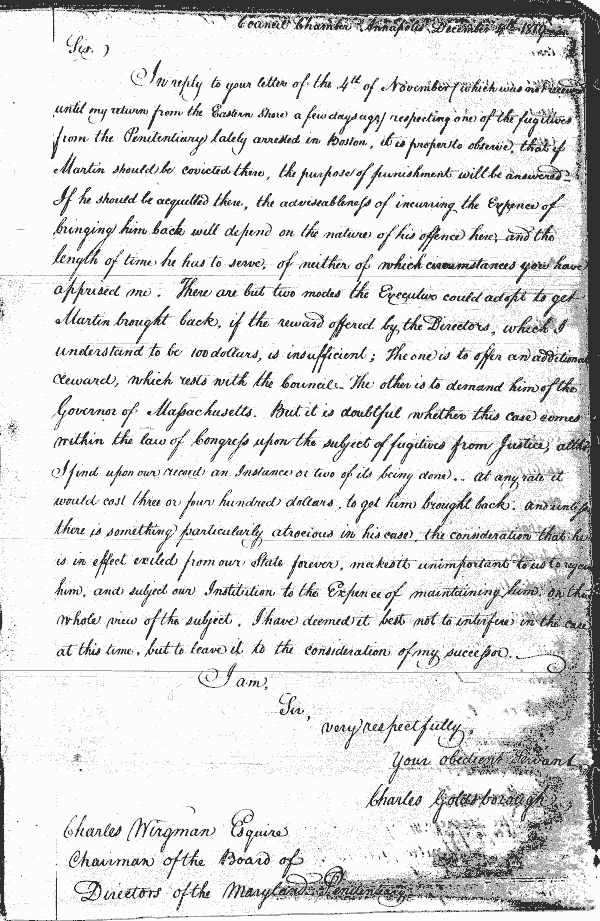 Council Chamber Annapolis December 4th
Sir. )
In reply to your letter of the 4th of November (which was not
until my return from the Eastern Shore a few days ago) respecting one of the fugitives
from the Penitentiary lately arrested in Boston, it is proper to observe, that if
Martin should be covicted there, the purpose of punishment will be answered.
If he should be acquitted there, the adviseableness of incurring the Expence of
bringing him back will depend on the nature of his offence here, and the
length of time he has to serve, of neither of which circumstances you have
apprised me. There are but two modes the Executive could adopt to get
Martin brought back, if the reward offered by the Directors, which I
understand to be 100 dollars, is insufficient; The one is to offer an additional
reward, which rests with the Council – The other is to demand him of the
Governor of Massachusetts. But it is doubtful whether this case comes
within the law of Congress upon the subject of fugitives from Justice, altho
I find upon our record an Instance or two of its being done.. At any rate it
would cost three or four hundred dollars, to get him brought back. and unless
there is something particularly atrocious in his case, the consideration that he
is in effect exiled from our State forever, makes it unimportant to us to
him, and subject our Institution to the Expence of maintaining him. on the
whole view of the subject. I have deemed it best not to interfere in the case
at this time, but to leave it to the consideration of my successor.
I am,
Sir,
very respectfully,
Your obedient Servant,
Charles Goldsborough
Charles Wirgman Esquire
Chairman of the Board of
Directors of the Maryland Penitentiary